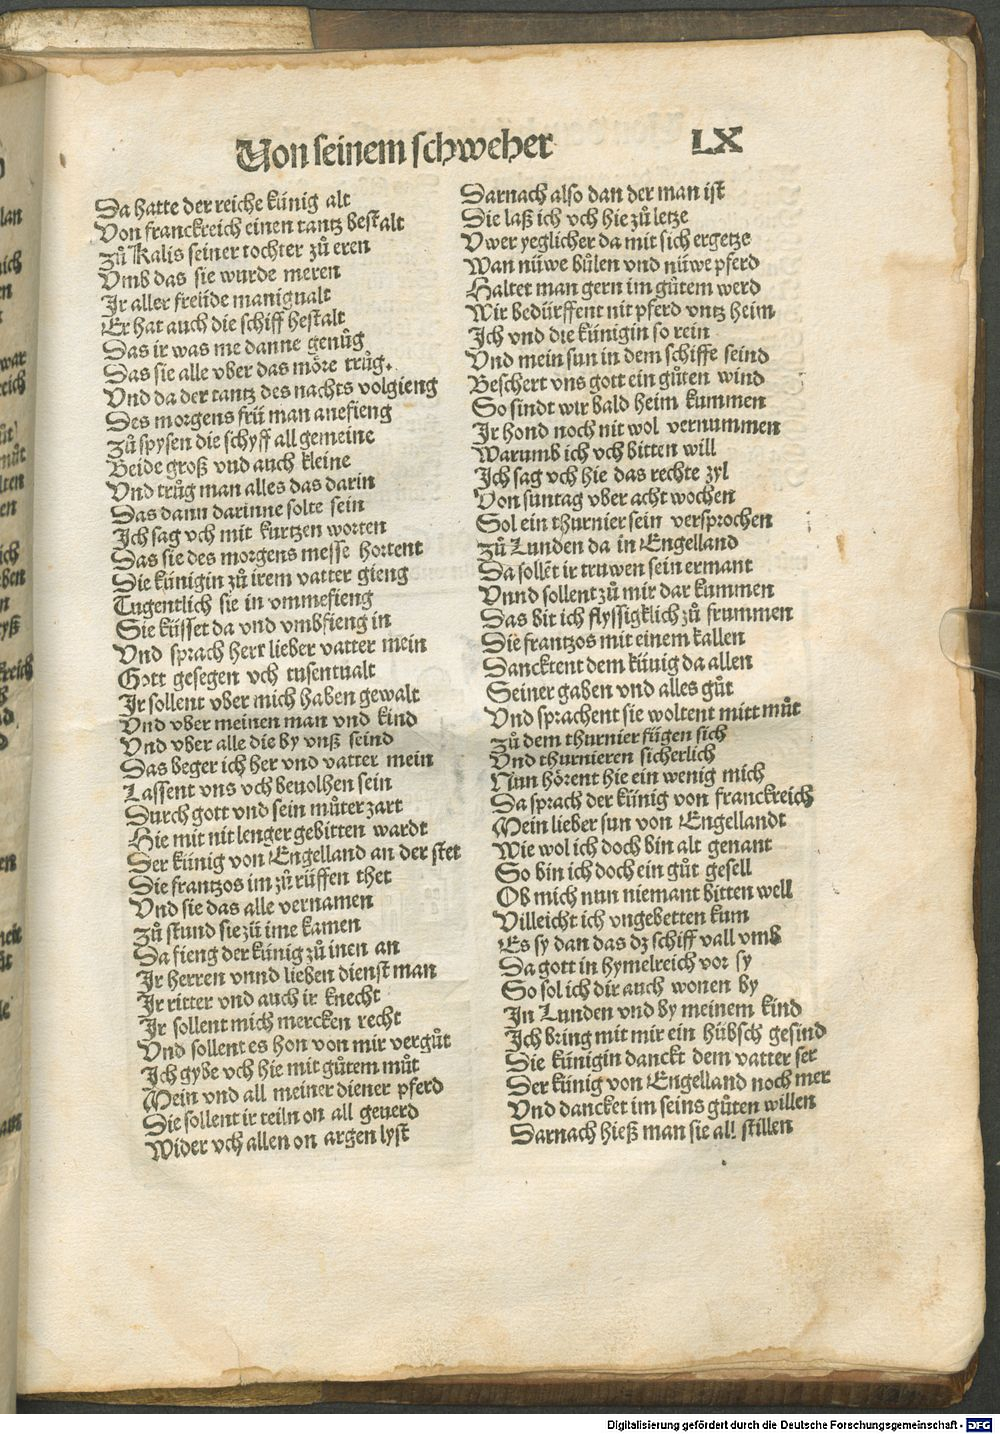 Von seinem schweher LX
Da hatte der reiche künig alt
Von franckreich einen tantz bestalt
zů Kalis seiner tochter zů eren
Vmb das sie wurde meren
Ir aller freüde manigualt
Er hat auch die schiff bestalt
Das ir was me danne genůg
Das sie alle vber das möre trůg.
Vnd da der tantz des nachts volgieng
Des morgens frü man anefieng
zů spysen die schyff all gemeine
Beide groß vnd auch kleine
Vnd trůg man alles das darin
Das dann darinne solte sein
Ich sag vch mit kurtzen worten
Das sie des morgens messe hortent
Die künigin zů irem vatter gieng
Tugentlich sie in vmmefieng
Sie küsset da vnd vmbfieng in
Vnd sprach herr lieber vatter mein
Gott gesegen vch tusentualt
Ir sollent vber mich haben gewalt
Vnd vber meinen man vnd kind
Vnd vber alle die by vnß seind
Das beger ich her vnd vatter mein
Lassent vns vch beuolhen sein
Durch gott vnd sein můter zart
Hie mit nit lenger gebitten wardt
Der künig von Engelland an der stet
Die frantzos im zů rüffen thet
Vnd sie das alle vernamen
zů stund sie zů ime kamen
Da fieng der künig zů inen an
Ir herren vnnd lieben dienst man
Ir ritter vnd auch ir knecht
Ir sollent mich mercken recht
Vnd sollent es hon von mir vergůt
Ich gybe vch hie mit gůtem můt
Mein vnd all meiner diener pferd
Die sollent ir teiln on all geuerd
Wider vch allen on argen lyst
Darnach also dan der man ist
Die laß ich vch hie zů letze
Vwer yeglicher da mit sich ergetze
Wan nüwe bůlen vnd nüwe pferd
Haltet man gern im gůtem werd
Wir bedürffent nit pferd vntz heim
Ich vnd die künigin so rein
Vnd mein sun in dem schiffe seind
Beschert vns gott ein gůten wind
So sindt wir bald heim kummen
Ir hond noch nit wol vernummen
Warumb ich vch bitten will
Ich sag vch hie das rechte zyl
Von suntag vber acht wochen
Sol ein thurnier sein versprochen
zů Lunden da in Engelland
Da sollēt ir truwen sein ermant
Vnnd sollent zů mir dar kummen
Das bit ich flyssigklich zů frummen
Die frantzos mit einem kallen
Dancktent dem künig da allen
Seiner gaben vnd alles gůt
Vnd sprachent sie woltent mitt můt
zů dem thurnier fügen sich
Vnd thurnieren sicherlich
Nun hörent hie ein wenig mich
Da sprach der künig von franckreich
Mein lieber sun von Engellandt
Wie wol ich doch bin alt genant
So bin ich doch ein gůt gesell
Ob mich nun niemant bitten well
Villeicht ich vngebetten kum
Es sy dan das dz schiff vall vmb
Da gott in hymelreich vor sy
So sol ich dir auch wonen by
In Lunden vnd by meinem kind
Ich bring mit mir ein hübsch gesind
Die künigin danckt dem vatter ser
Der künig von Engelland noch mer
Vnd dancket im seins gůten willen
Darnach hieß man sie all stillen
Digitalisierung gefördert durch die Deutsche Forschungsgemeinschaft - DFG